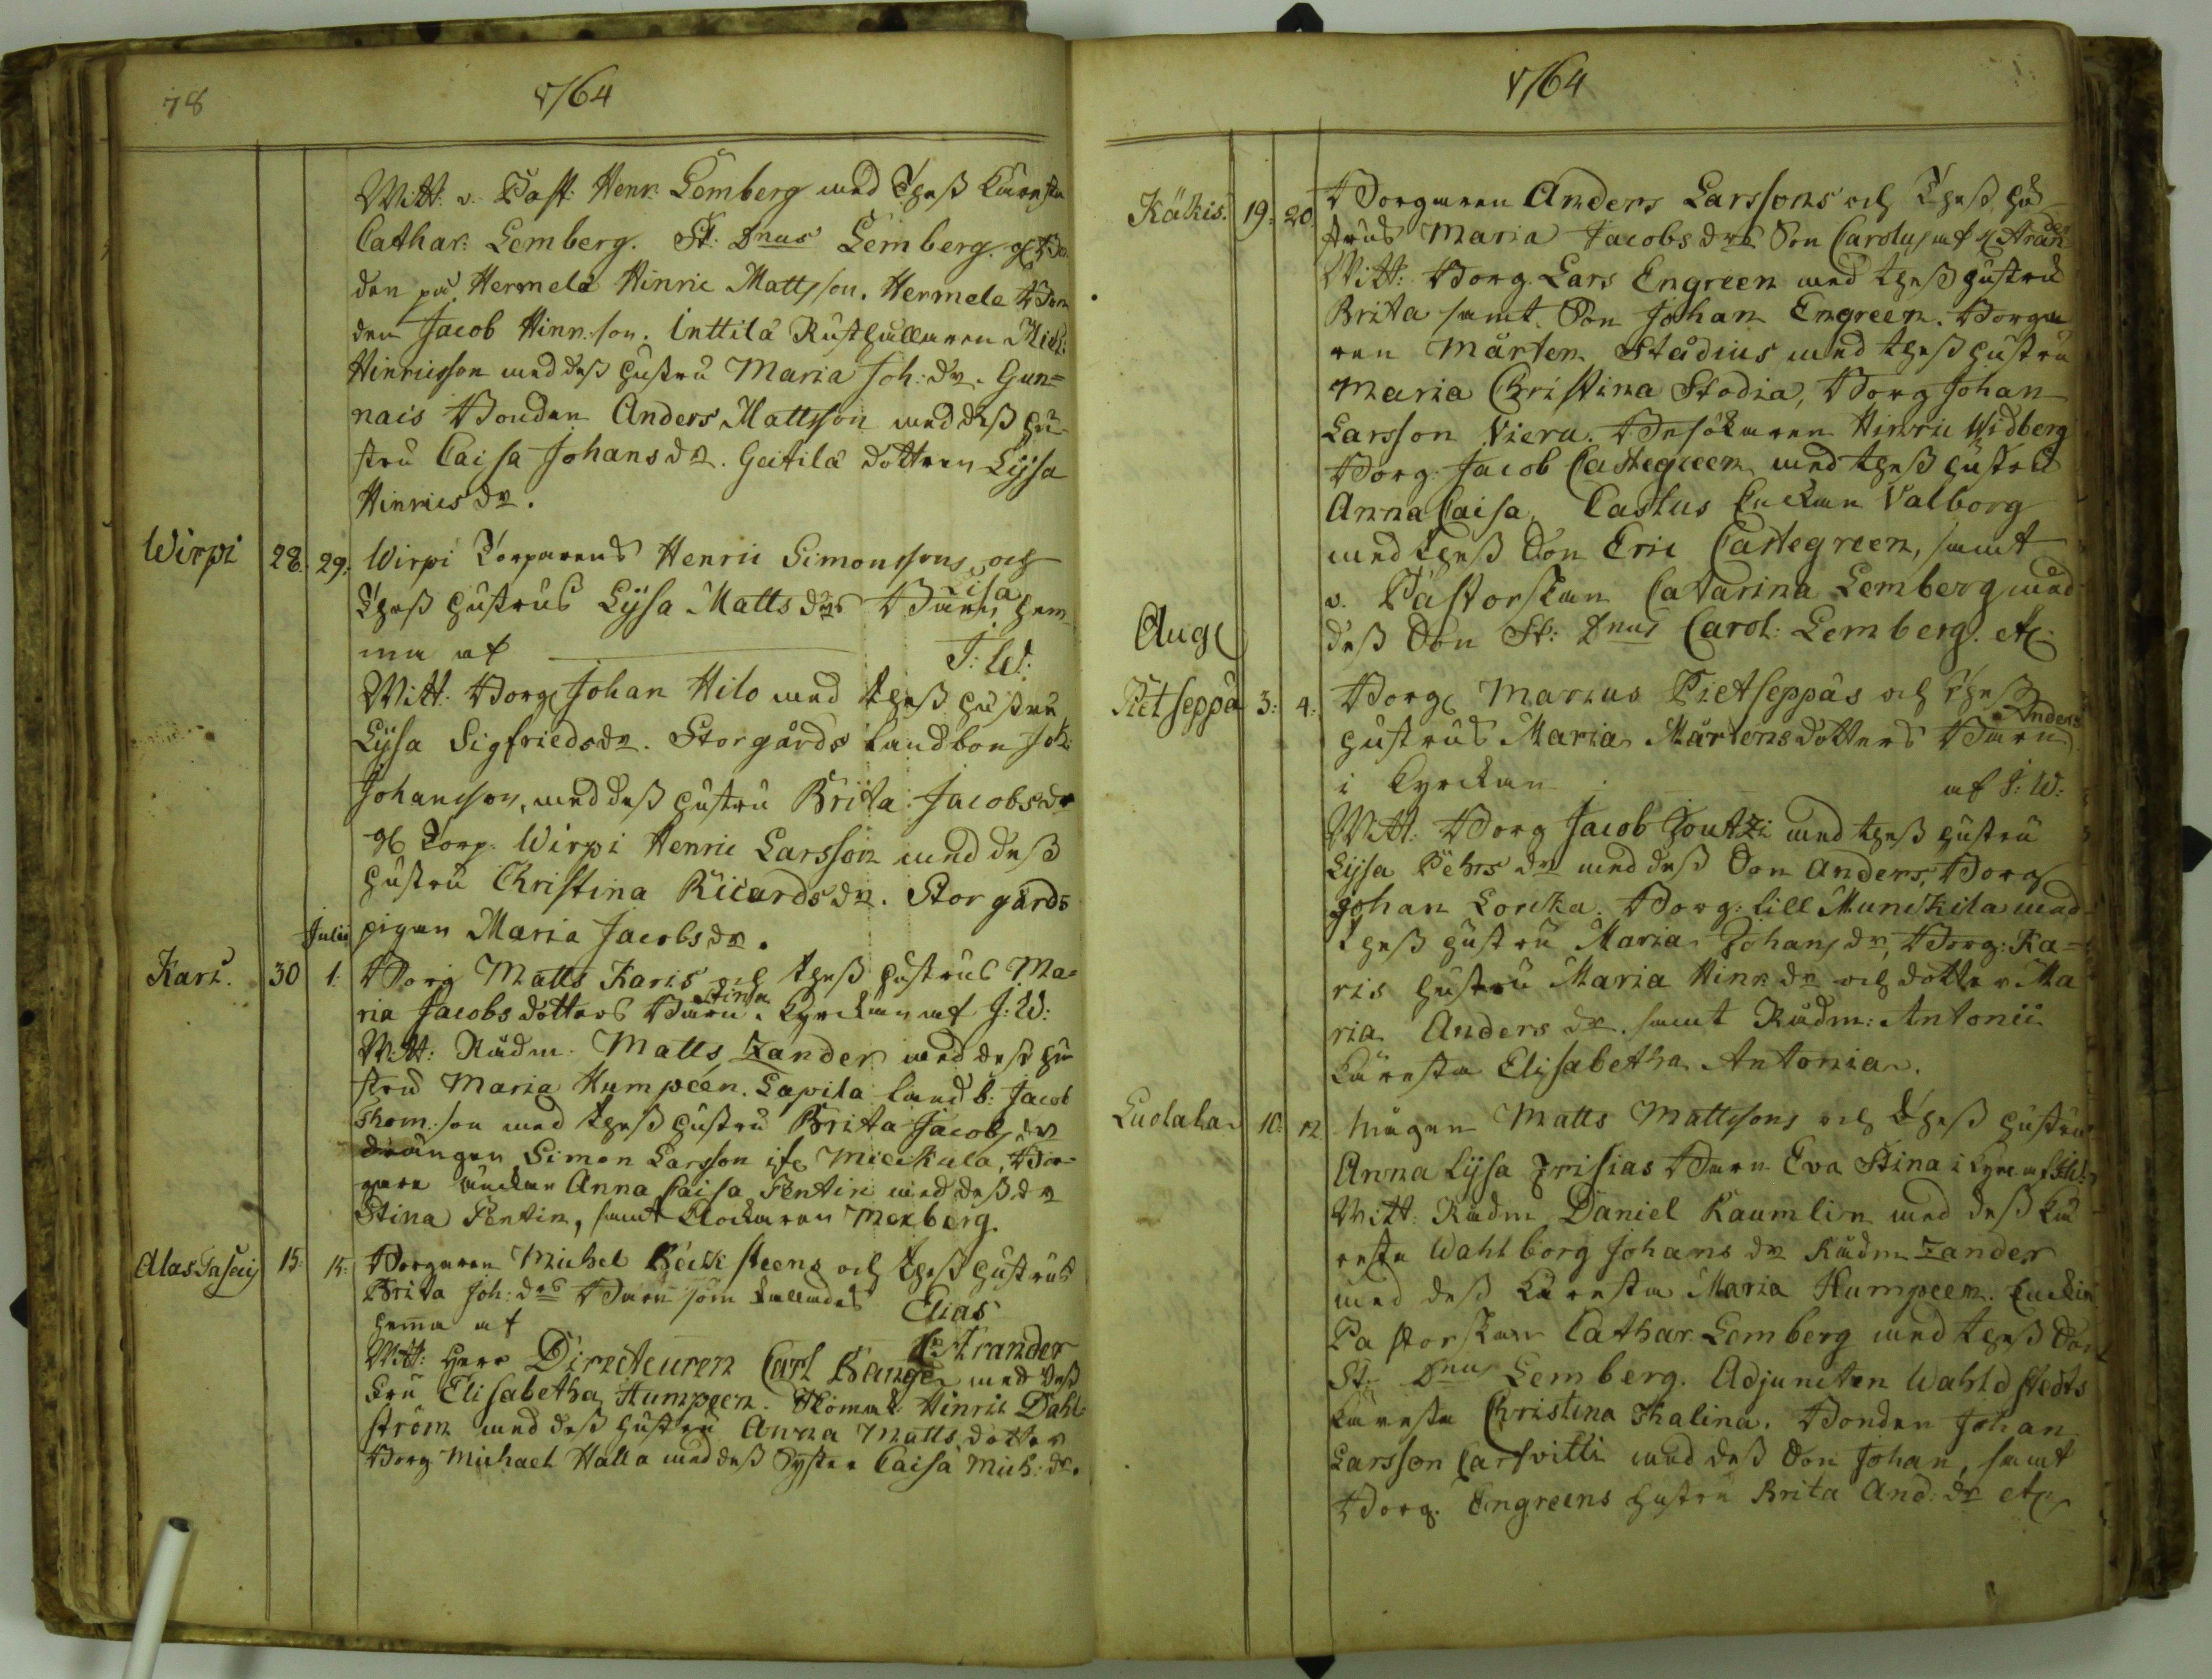 78
1764
Witt. v. Past. Henr. Lemberg med Thess Käresta
Cathar. Lemberg. St. Dnus Lemberg. Bon-
den på Hermela Hinric Mattsson. Hermela Bon
den Jacob Hinr.son. Inttilä Rusthållaren Mich:
Hinricsson med dess hustru Maria Joh: dr. Gun-
nais Bonden Anders Mattsson med dess hu-
stru Caisa Johans dr. Gatilä dottren Lysa
Hinrics dr.
Wirpi 28. 29. Wirpi Torparens Henric Simonssons och
Thess hustrus Lysa Matts drs Barn Lisa hem-
ma af J: W:
Witt. Borg. Johan Hilo med thess hustru
Lysa Sigfrieds dr. Storgårds Landbon Joh:
Johansson, med dess hustru Brita Jacobs dr
Torp. Wirpi Henric Larsson med dess
hustru Christina Ricards dr. Storgårds
Julii pigan Maria Jacobs dr.
Kari. 30 1. Borg Matts Karis och thess hustrus Ma-
ria Jacobs dotters Barn Stina i Kyrckan af J: W:
Witt: Rådm. Matts Zander med dess hu
stru Maria Humpeen. Lapila landb: Jacob
Thom.son med thess hustru Brita Jacobs dr
drängen Simon Larsson ifr Mickula, Bor-
gare änckan Anna Caisa Fentin med dess dr
Stina Fentin, samt Klockaren Mexberg.
Alas Tasaij 15. 15. Borgaren Michel Bäcksteens och thess hustrus
Brita Joh: drs Barn som kallades Elias
hemma af C. Strander
Witt: Herr Directeuren Carl Bange med dess
Fru Elisabetha Humpeen. Hinric Dahl-
ström med dess hustru Anna Matts dotter
Borg Michael Halla med dess Syster Caisa Mich: dr.
1764
Käkis. 19. 20. Borgaren Anders Larssons och Thess hu-
strus Maria Jacobs drs Son Carolus af Strander
Witt: Borg. Lars Engreen med thess hustru
Brita samt Son Johan Engreen. Borga
ren Mårten Stadius med thess hustru
Maria Christina Stodia, Borg Johan
Larsson Vieru. Besökaren Hinric Widberg
Borg. Jacob Castegreen med thess hustru
Anna Caisa. Castus Enckan Valborg
med thess Son Eric Castegreen, samt
v. Pastorskan Catarina Lemberg med
dess Son St: Dnus Carol: Lemberg. etc
Aug
Pietseppä 3: 4: Borg Marcus Pietseppäs och Thess
hustrus Maria Mårtensdotters Barn Anders
i Kyrckan af J: W:
Witt: Borg Jacob Houtzi med thess hustru
Lysa Pehrs dr med dess Son Anders, Borg
Johan Loncka. Borg: Lill Munckila med
thess hustru Maria Johans dr, Borg: Ka-
ris hustru Maria Hinr. dr och dotter Ma
ria Anders dr. samt Rådm: Antonii
Käresta Elisabetha Antonia.
Luolala 10. 12. Mågen Matts Mattssons och Thess hustrus
Anna Lysa Frisias Barn Eva Stina i Kyrc af J.W:
Witt: Rådm Daniel Raumlin med dess Kä
resta Wahlborg Johans dr Rådm Zander
med dess Käresta Maria Humpeen. Enckie
Pastorskan Cathar. Lemberg med thess Son
St. Dnus Lemberg. Adjuncten Wahldstedts
Käresta Christina Thalina. Bonden Johan
Larsson Carfvitti med dess Son Johan, samt
Borg. Engreens hustru Brita And: dr etc